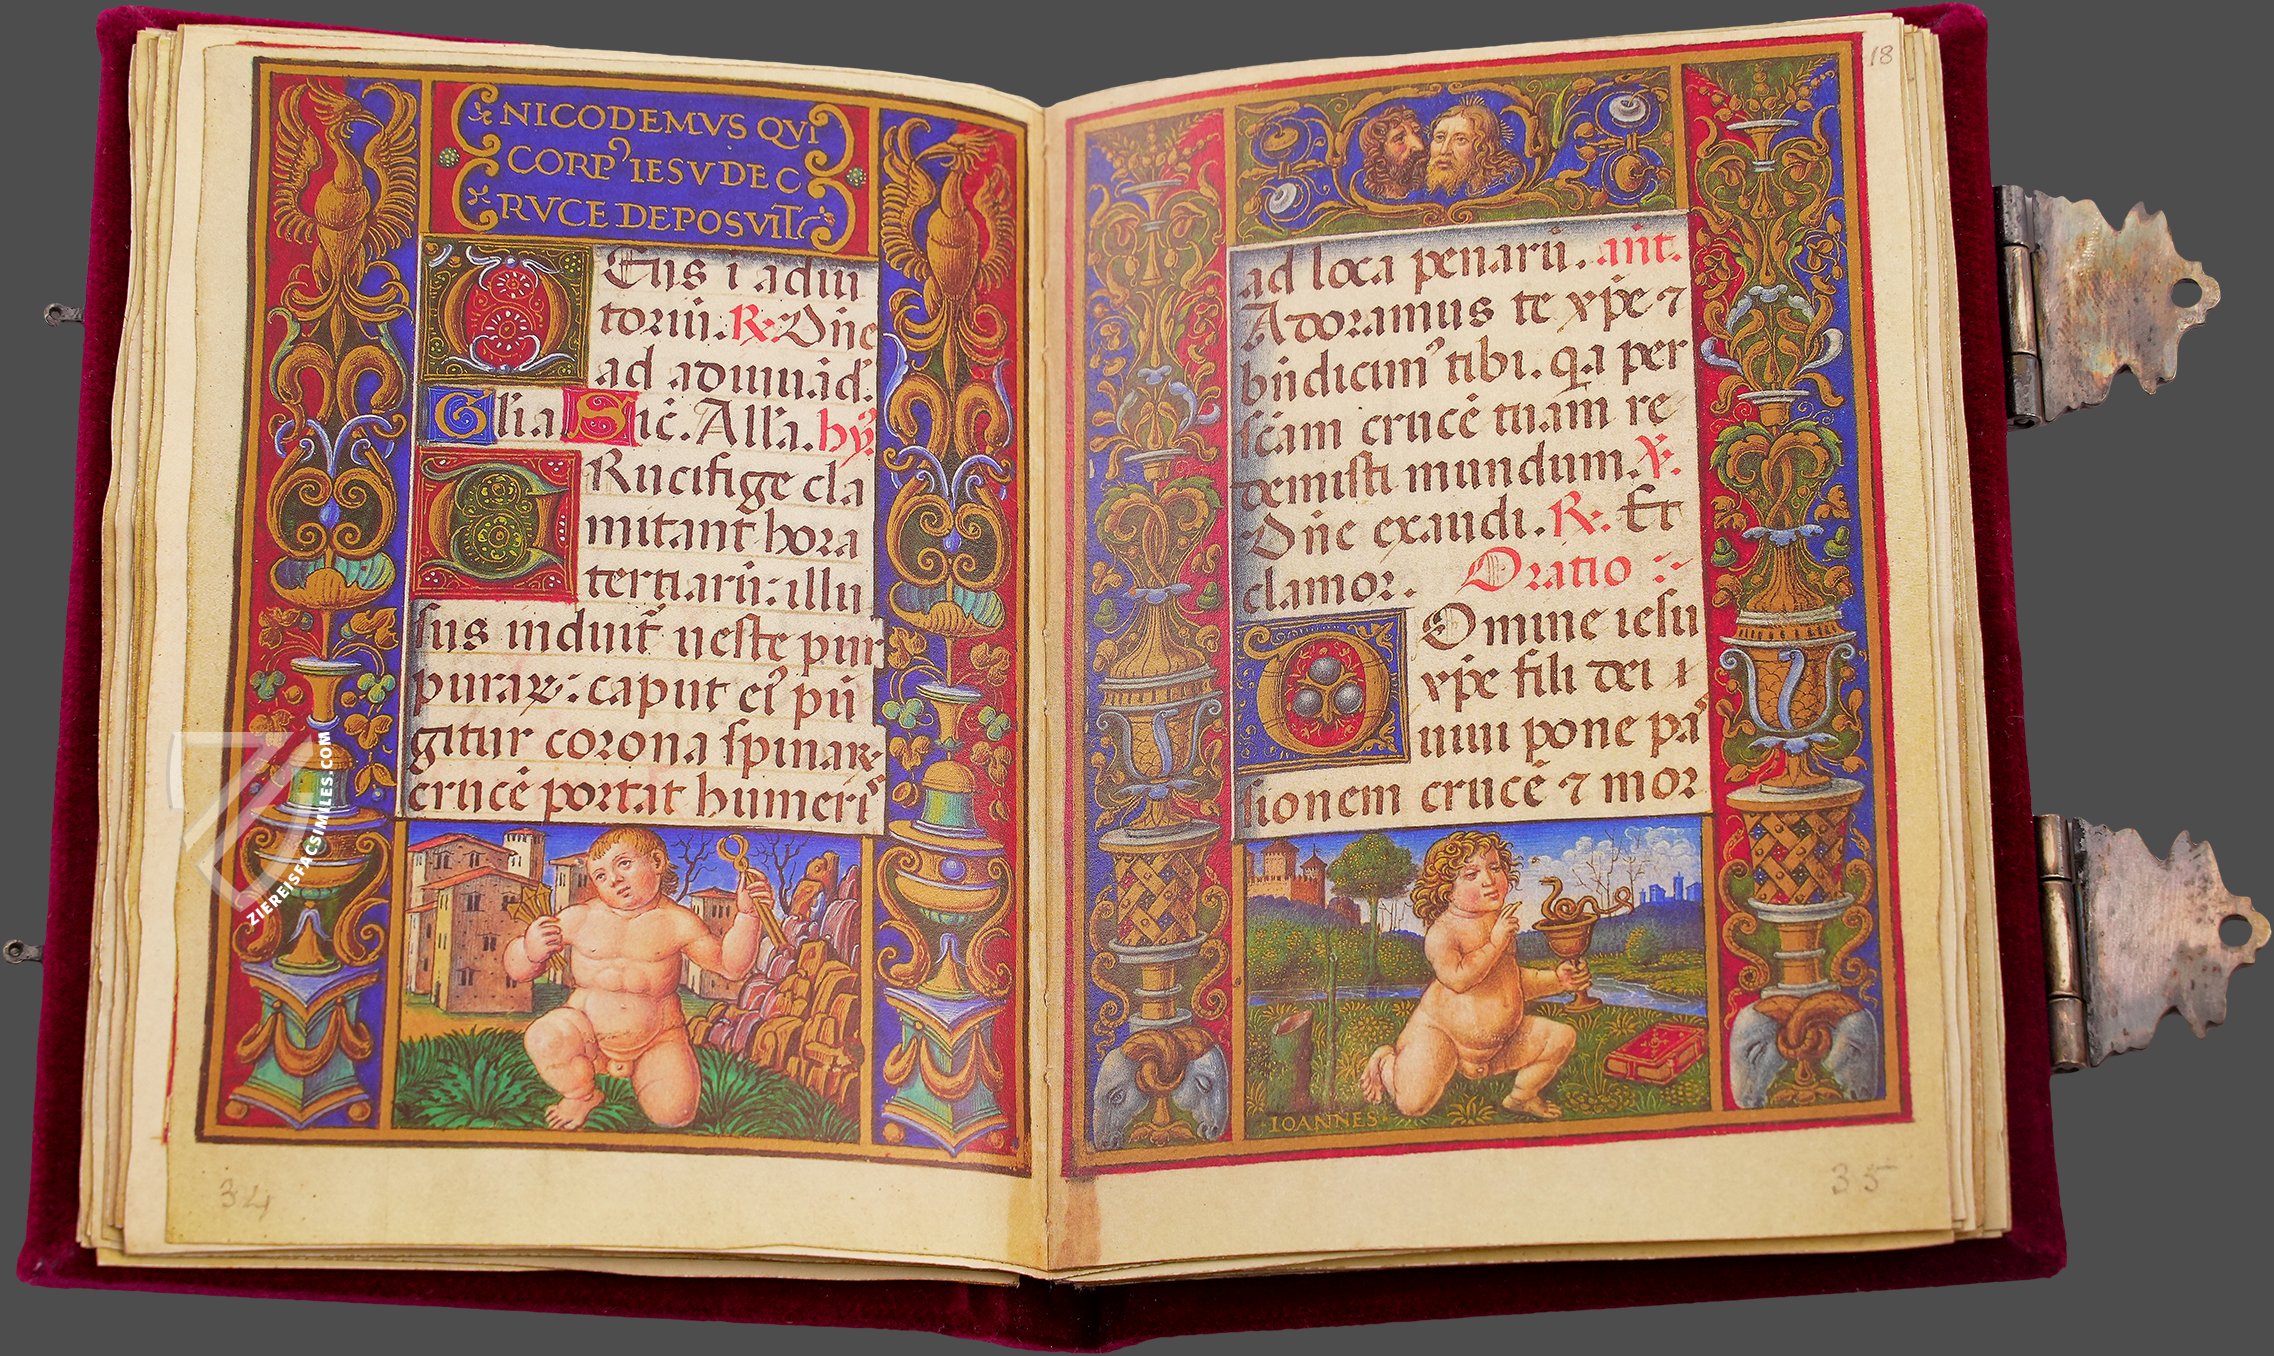 NICODEMVS QVI
CORPꝰ IESV DE C
RVCE DEPOSVIT
DEus ī adiu
toriū. ℟. Dn̄e
ad adiuuād.
Gl'ia Sic̄. All'a. hy̅.
CRucifige cla
mitant hora
tertiarū: illu
sus induit̄ ueste pur
puraꝝ: caput eiꝰ pū
gitur corona spinaꝝ
crucē portat humeris
34
18
ad loca penarū. ant.
Adoramus te xp̄e ⁊
bn̄dicimꝰ tibi. q.a per
sc̄am crucē tuam re
demisti mundum. ℣.
Dn̄e exaudi. ℟. Et
clamor. Oratio
DOmine iesu
xp̄e fili dei ui
ui pone pas
sionem crucē ⁊ mor
IOANNES
35
ZIEREISFACSIMILES.COM